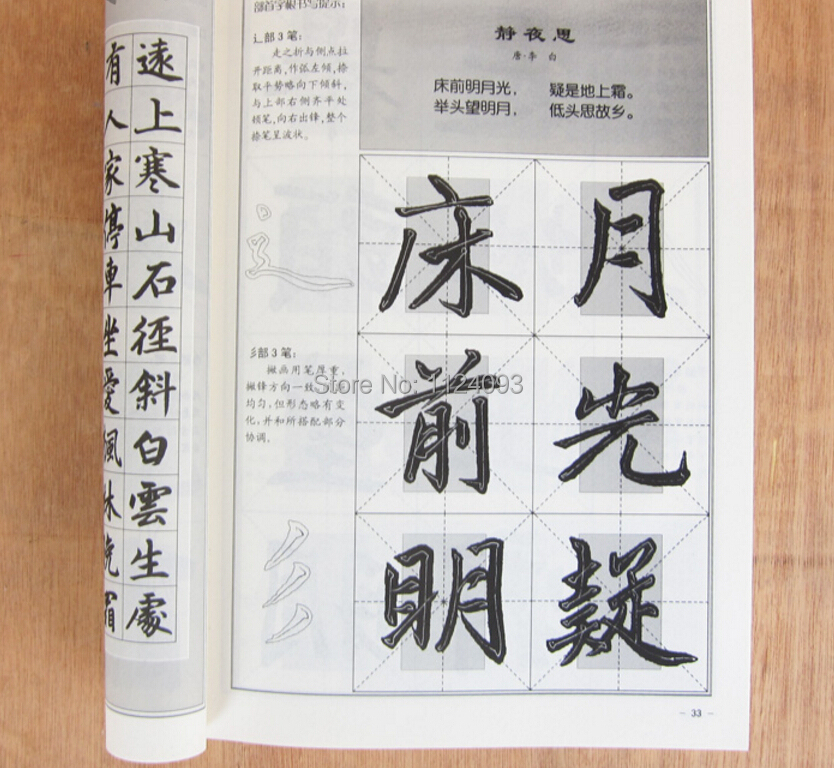 遠上寒山石徑斜白雲生處
有人家停車坐愛楓林晚霜
辶部3笔：
走之折与侧点拉
开距离，作弧左倾，捺
取平势略向下倾斜，
与上部右侧齐平处
顿笔，向右出锋，整个
捺笔呈波状。
彡部3笔：
撇画用笔厚重，
撇锋方向一致
均匀，但形态略有变
化，并和所搭配部分
协调。
静夜思
唐·李白
床前明月光， 疑是地上霜。
举头望明月， 低头思故乡。
床前明
月光疑
Store No: 1124093
33